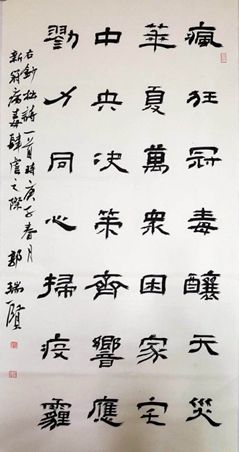 瘋狂冠毒釀天災
華夏萬衆困家宅
中央决策齊響應
勠力同心掃疫霾
右鈔拙詩一首時庚子春月
新冠病毒肆虐之際 郭瑞